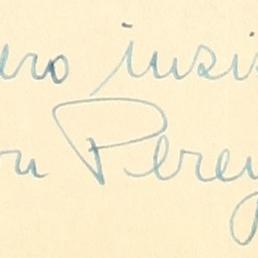 ero insis
on Perey